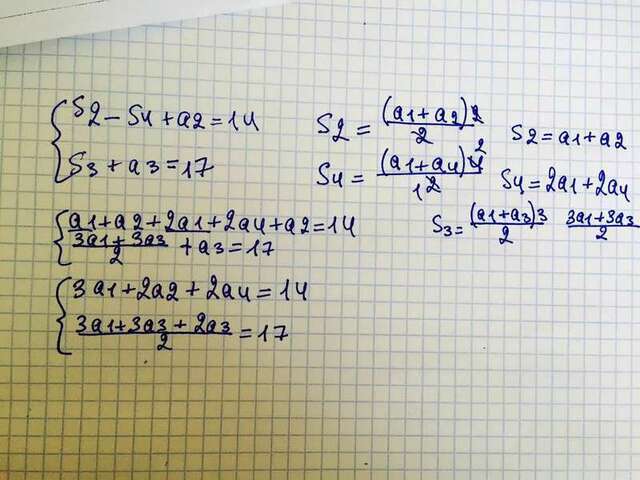 S2 - S4 + a2 = 14
S3 + a3 = 17
S2 = (a1 + a2)2 / 2
S2 = a1 + a2
S4 = (a1 + a4)4 2 / 1 2
S4 = 2a1 + 2a4
S3 = (a1 + a3)3 / 2 3a1 + 3a3 / 2
a1 + a2 + 2a1 + 2a4 + a2 = 14
3a1 + 3a3 / 2 + a3 = 17
3a1 + 2a2 + 2a4 = 14
3a1 + 3a3 + 2a3 / 2 = 17